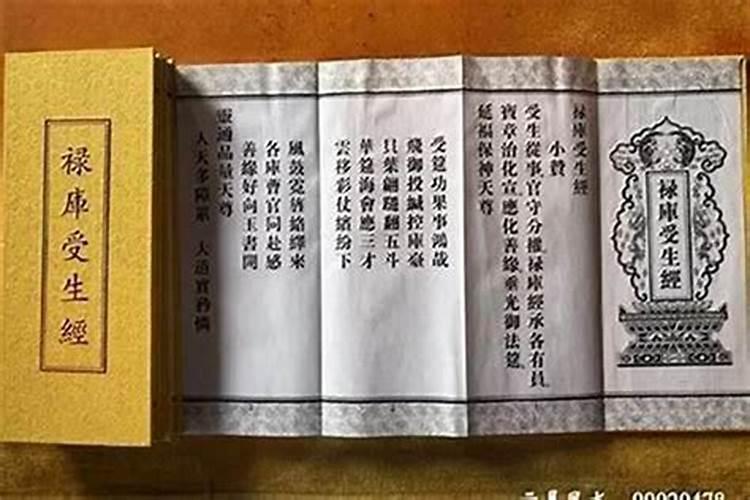 禄庫受生經
禄庫受生經
禄庫受生經
小贊
受生從事官守分權禄庫經承各有員
寶章治化宣應化善緣垂光御法筵
延福保神天尊
受筵功果事鴻哉
飛御投緘控庫臺
貝葉翩躚翻五斗
華筵海會應三才
雲移彩仗繽紛下
風鼓霓旌絡繹來
各庫曹官同赴感
善緣好向玉書開
靈通品量天尊
人天多障累 大道實矜憐